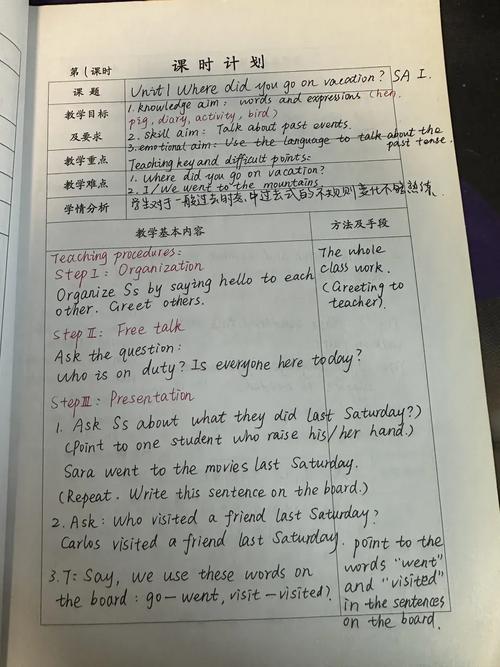 第1课时 课时计划
课题 Unit1 Where did you go on vacation? SA I.
教学目标 1. knowledge aim: words and expressions (hen,
pig, diary, activity, bird)
及要求 2. skill aim: Talk about past events.
3. emotional aim: Use the language to talk about the
past tense.
教学重点 Teaching key and difficult points:
1. Where did you go on vacation?
教学难点 2. I/We went to the mountains
学情分析 学生对于一般过去时态,中过去式的不规则变化不够熟练.
教学基本内容 方法及手段
Teaching procedures:
Step I: Organization
Organize Ss by saying hello to each
other. Greet others.
The whole
class work.
(Greeting to
teacher).
Step II: Free talk
Ask the question:
Who is on duty? Is everyone here today?
Step III: Presentation
1. Ask Ss about what they did last Saturday?)
(Point to one student who raise his/her hand.)
Sara went to the movies last Saturday.
(Repeat. Write this sentence on the board.)
2. Ask: Who visited a friend last Saturday?
Carlos visited a friend last Saturday.
3. T: Say, we use these words on
the board: go—went, visit—visited?.
point to the
words "went"
and "visited"
in the sentences
on the board.